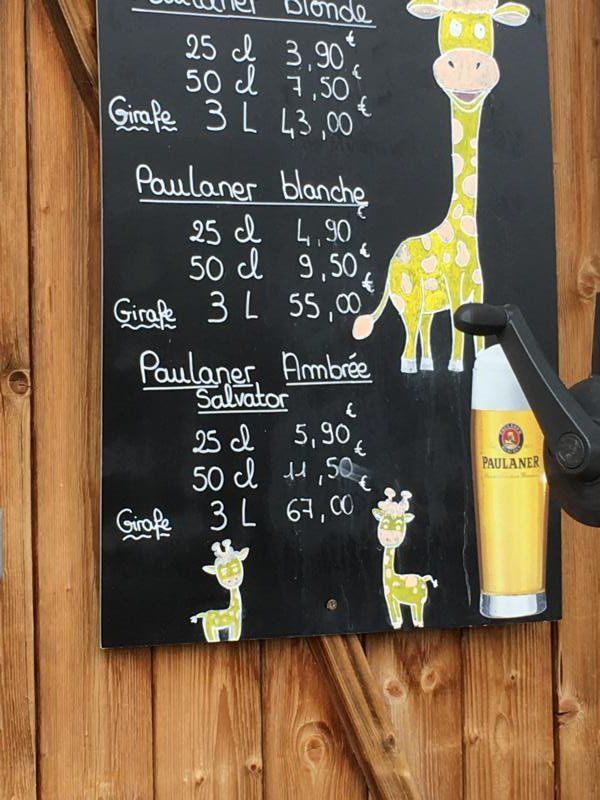 Paulaner Blonde
25 cl 3,90 €
50 cl 7,50 €
Girafe 3 L 43,00 €
Paulaner blanche
25 cl 4,90 €
50 cl 9,50 €
Girafe 3 L 55,00 €
Paulaner Armbrée
Salvator
25 cl 5,90 €
50 cl 11,50 €
Girafe 3 L 67,00 €
PAULANER